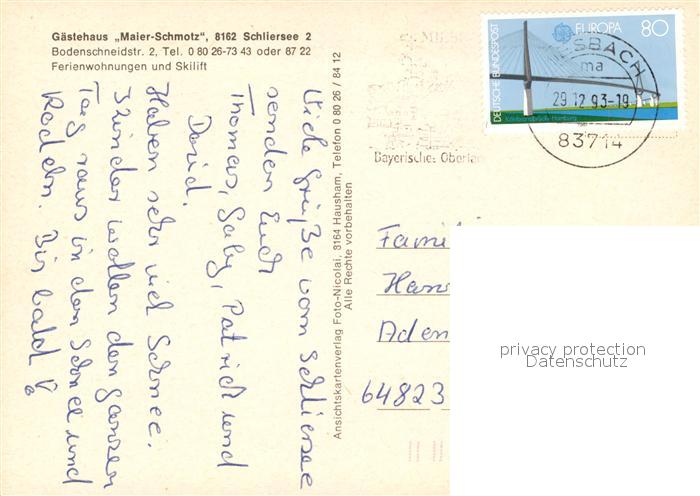 Gästehaus „Maier-Schmotz", 8162 Schliersee 2
Bodenschneidstr. 2, Tel. 0 80 26-73 43 oder 87 22
Ferienwohnungen und Skilift
Viele Grüße vom Schliersee
senden Euch
Thomas, Gaby, Patrick und
David.
Haben sehr viel Schnee.
Kinder wollen den ganzen
Tag raus in den Schnee und
Rodeln. Bis bald!
Ansichtskartenverlag Foto-Nicolai, 8164 Hausham, Telefon 0 80 26 / 84 12
Alle Rechte vorbehalten
Bayerisches Oberla
DEUTSCHE BUNDESPOST
EUROPA 80
Köhlbrandbrücke Hamburg
ESBACH
ma
29.12.93-19
83714
Fami
Han
Aden
64823
privacy protection
Datenschutz